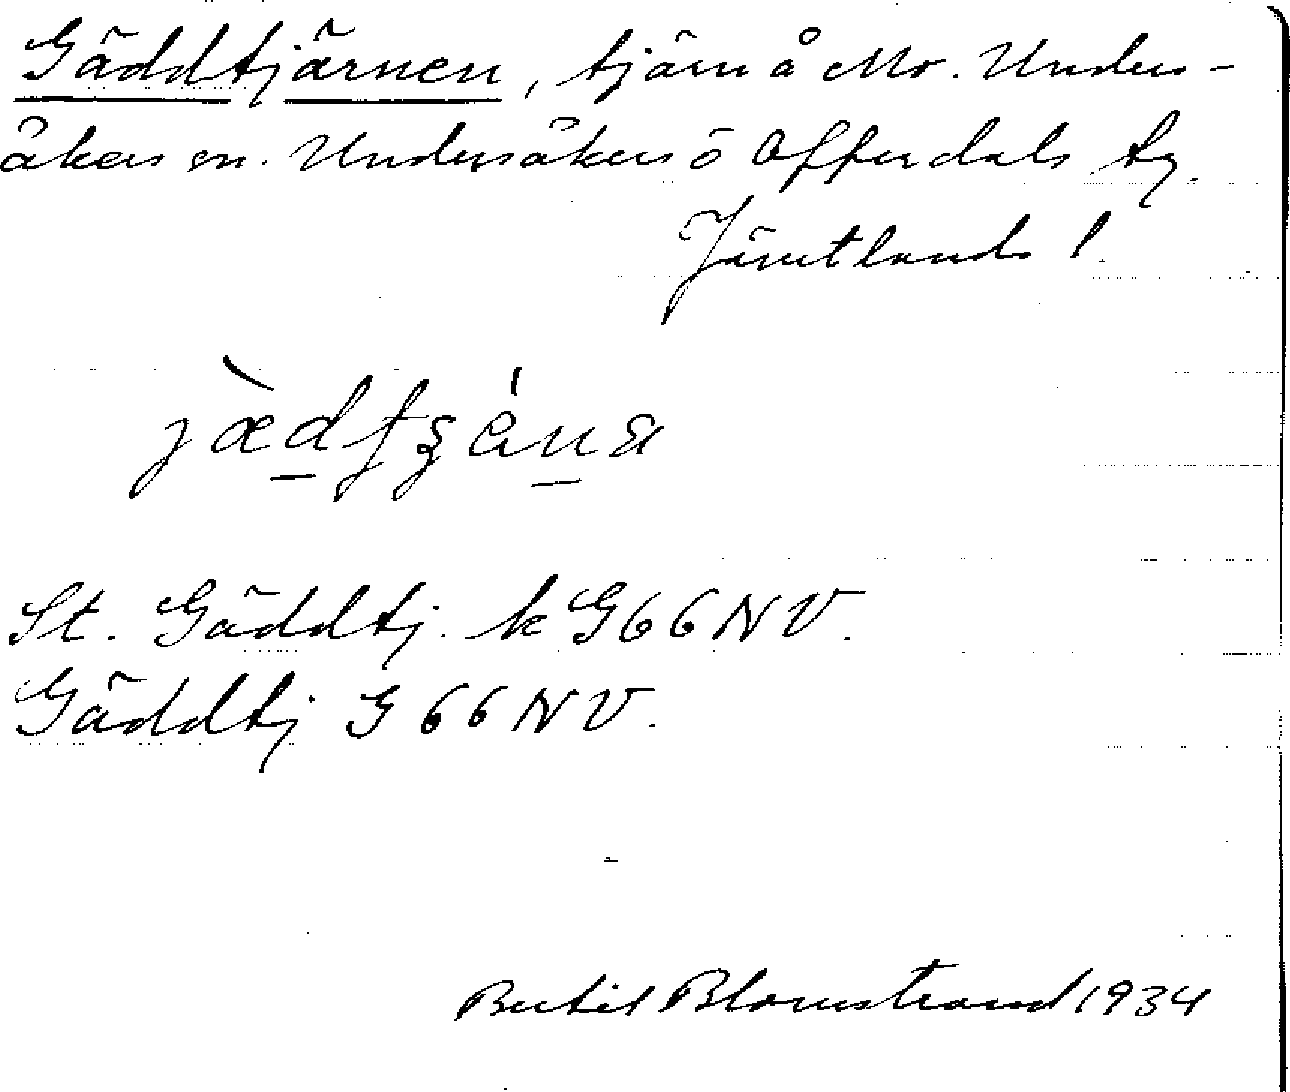 Gäddtjärnen, tjärn å Mo. Unders-
åkers sn. Undersåkers o Offerdals tg.
Jämtlands l.
St. Gäddtj. k G66NV.
Gäddtj G66NV.
Bertil Blomstrand 1934